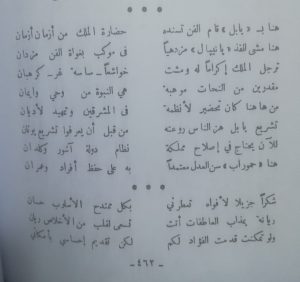 هنا بـ «بابل» قام الفن تسنده حضارة الملك من أزمان أزمان
هنا مشى للفذ «بانيبال» مزدهياً فى موكب بغواة الفن مزدان
ترجل الملك إكراماً له ومشت خواشعاً ـ ساسة غر ـ كرهبان
مقدرين من النحات موهبة هي النبوة من وحي وايمان
من هاهنا كان تحضير لأنظمة فى المشرقين وتمهيد لأديان
تشريع بابل هز الناس روعته من قبل أن يعرفوا تشريع يونان
للآن يحتاج في إصلاح مملكة نظام دولة آشور وكلدان
هنا «حمورآب» سن العدل معتمداً به على حفظ أفراد وعمران
* * *
شكراً جزيلا لأفواه تمطرني بكل ممتدح الأسلوب حسان
ريانة بعذاب العاطفات أتت تسعى لقلب من الأخلاص ريان
ولو تمكنت قدمت الفؤاد لكم لكن تقديم إحساسي بأمكاني
ـ ٤٦٢ ـ